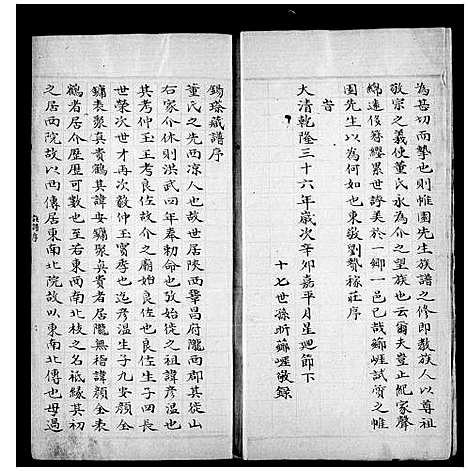 為甚切而摯也則帷園先生族譜之修即教族人以尊祖
敬宗之義使董氏永為介之望族也云爾夫豈止紀家聲
綿遠後簪纓累世誇美於一鄉一邑已哉蘇崕試質之帷
園先生以為何如也東敬劉贊稼莊序
旹
大清乾隆三十六年歲次辛卯嘉平月星廻節下
十七世孫昕蘇崕敬錄
錫琛藏譜序
董氏之先西涼人也故世居陝西鞏昌府隴西郡其徙山
右家介休則洪武四年奉勅命也攷始徙之祖諱彥溫也
其考仲玉王考良佐故介之廟始良佐也良佐生子四長
世榮次世才再次敬仲玉寶季也迨彥溫生子九安顏全
鏞表聚真貴鶴其諱安鏞聚真貴者居隴無稽諱顏全表
鶴者居介歷歷可數也至若東西南北枝之名祗緣其初
之居西院故以西傳居東南北院故以東南北傳也毋過